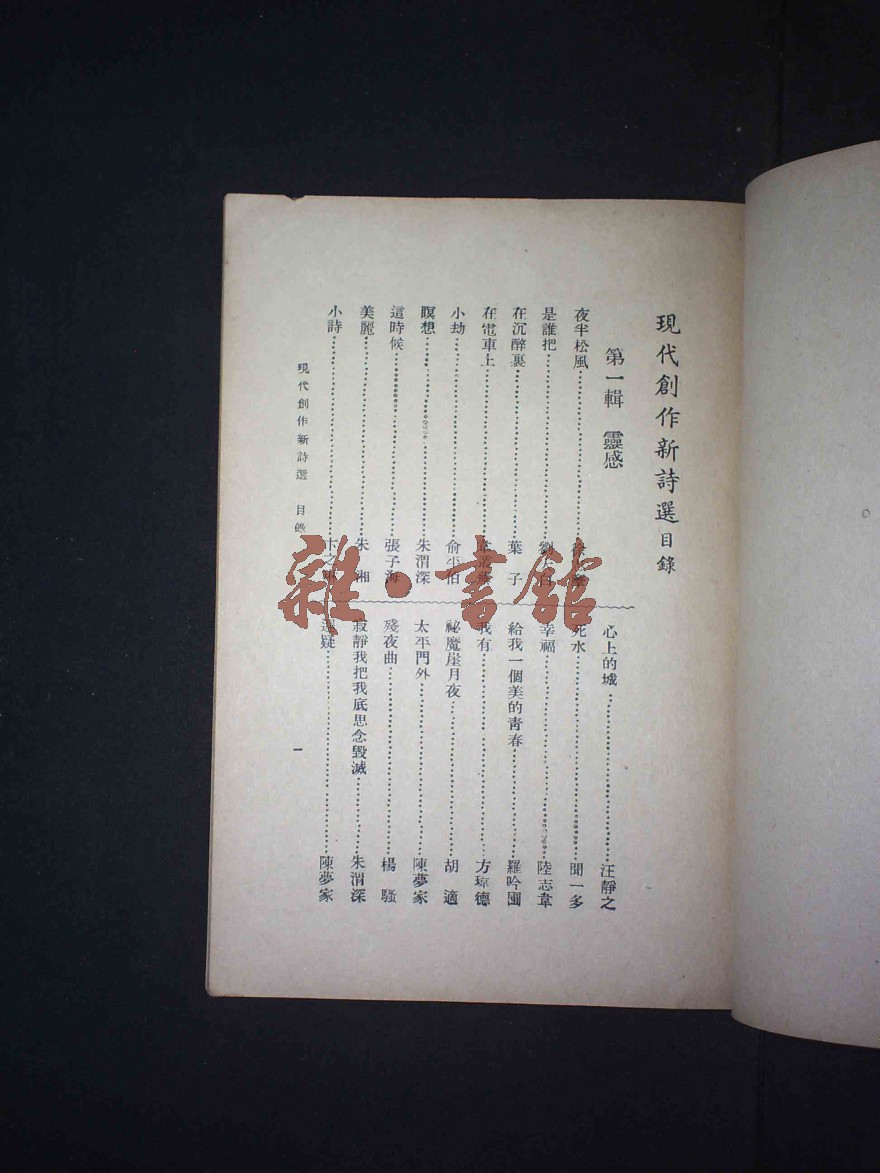 現代創作新詩選目錄
第一輯 靈感
夜半松風
是誰把 劉大白
在沉醉裏 葉子
在電車上
小劫 俞平伯
瞑想 朱渭深
這時候 張子海
美麗 朱湘
小詩 卞之琳
心上的城 汪靜之
死水 聞一多
幸福 陸志韋
給我一個美的青春 羅吟圃
我有 方瑋德
祕魔崖月夜 胡適
太平門外 陳夢家
殘夜曲 楊騷
寂靜我把我底思念毀滅 朱渭深
遲疑 陳夢家
現代創作新詩選 目錄
一
雜·書館